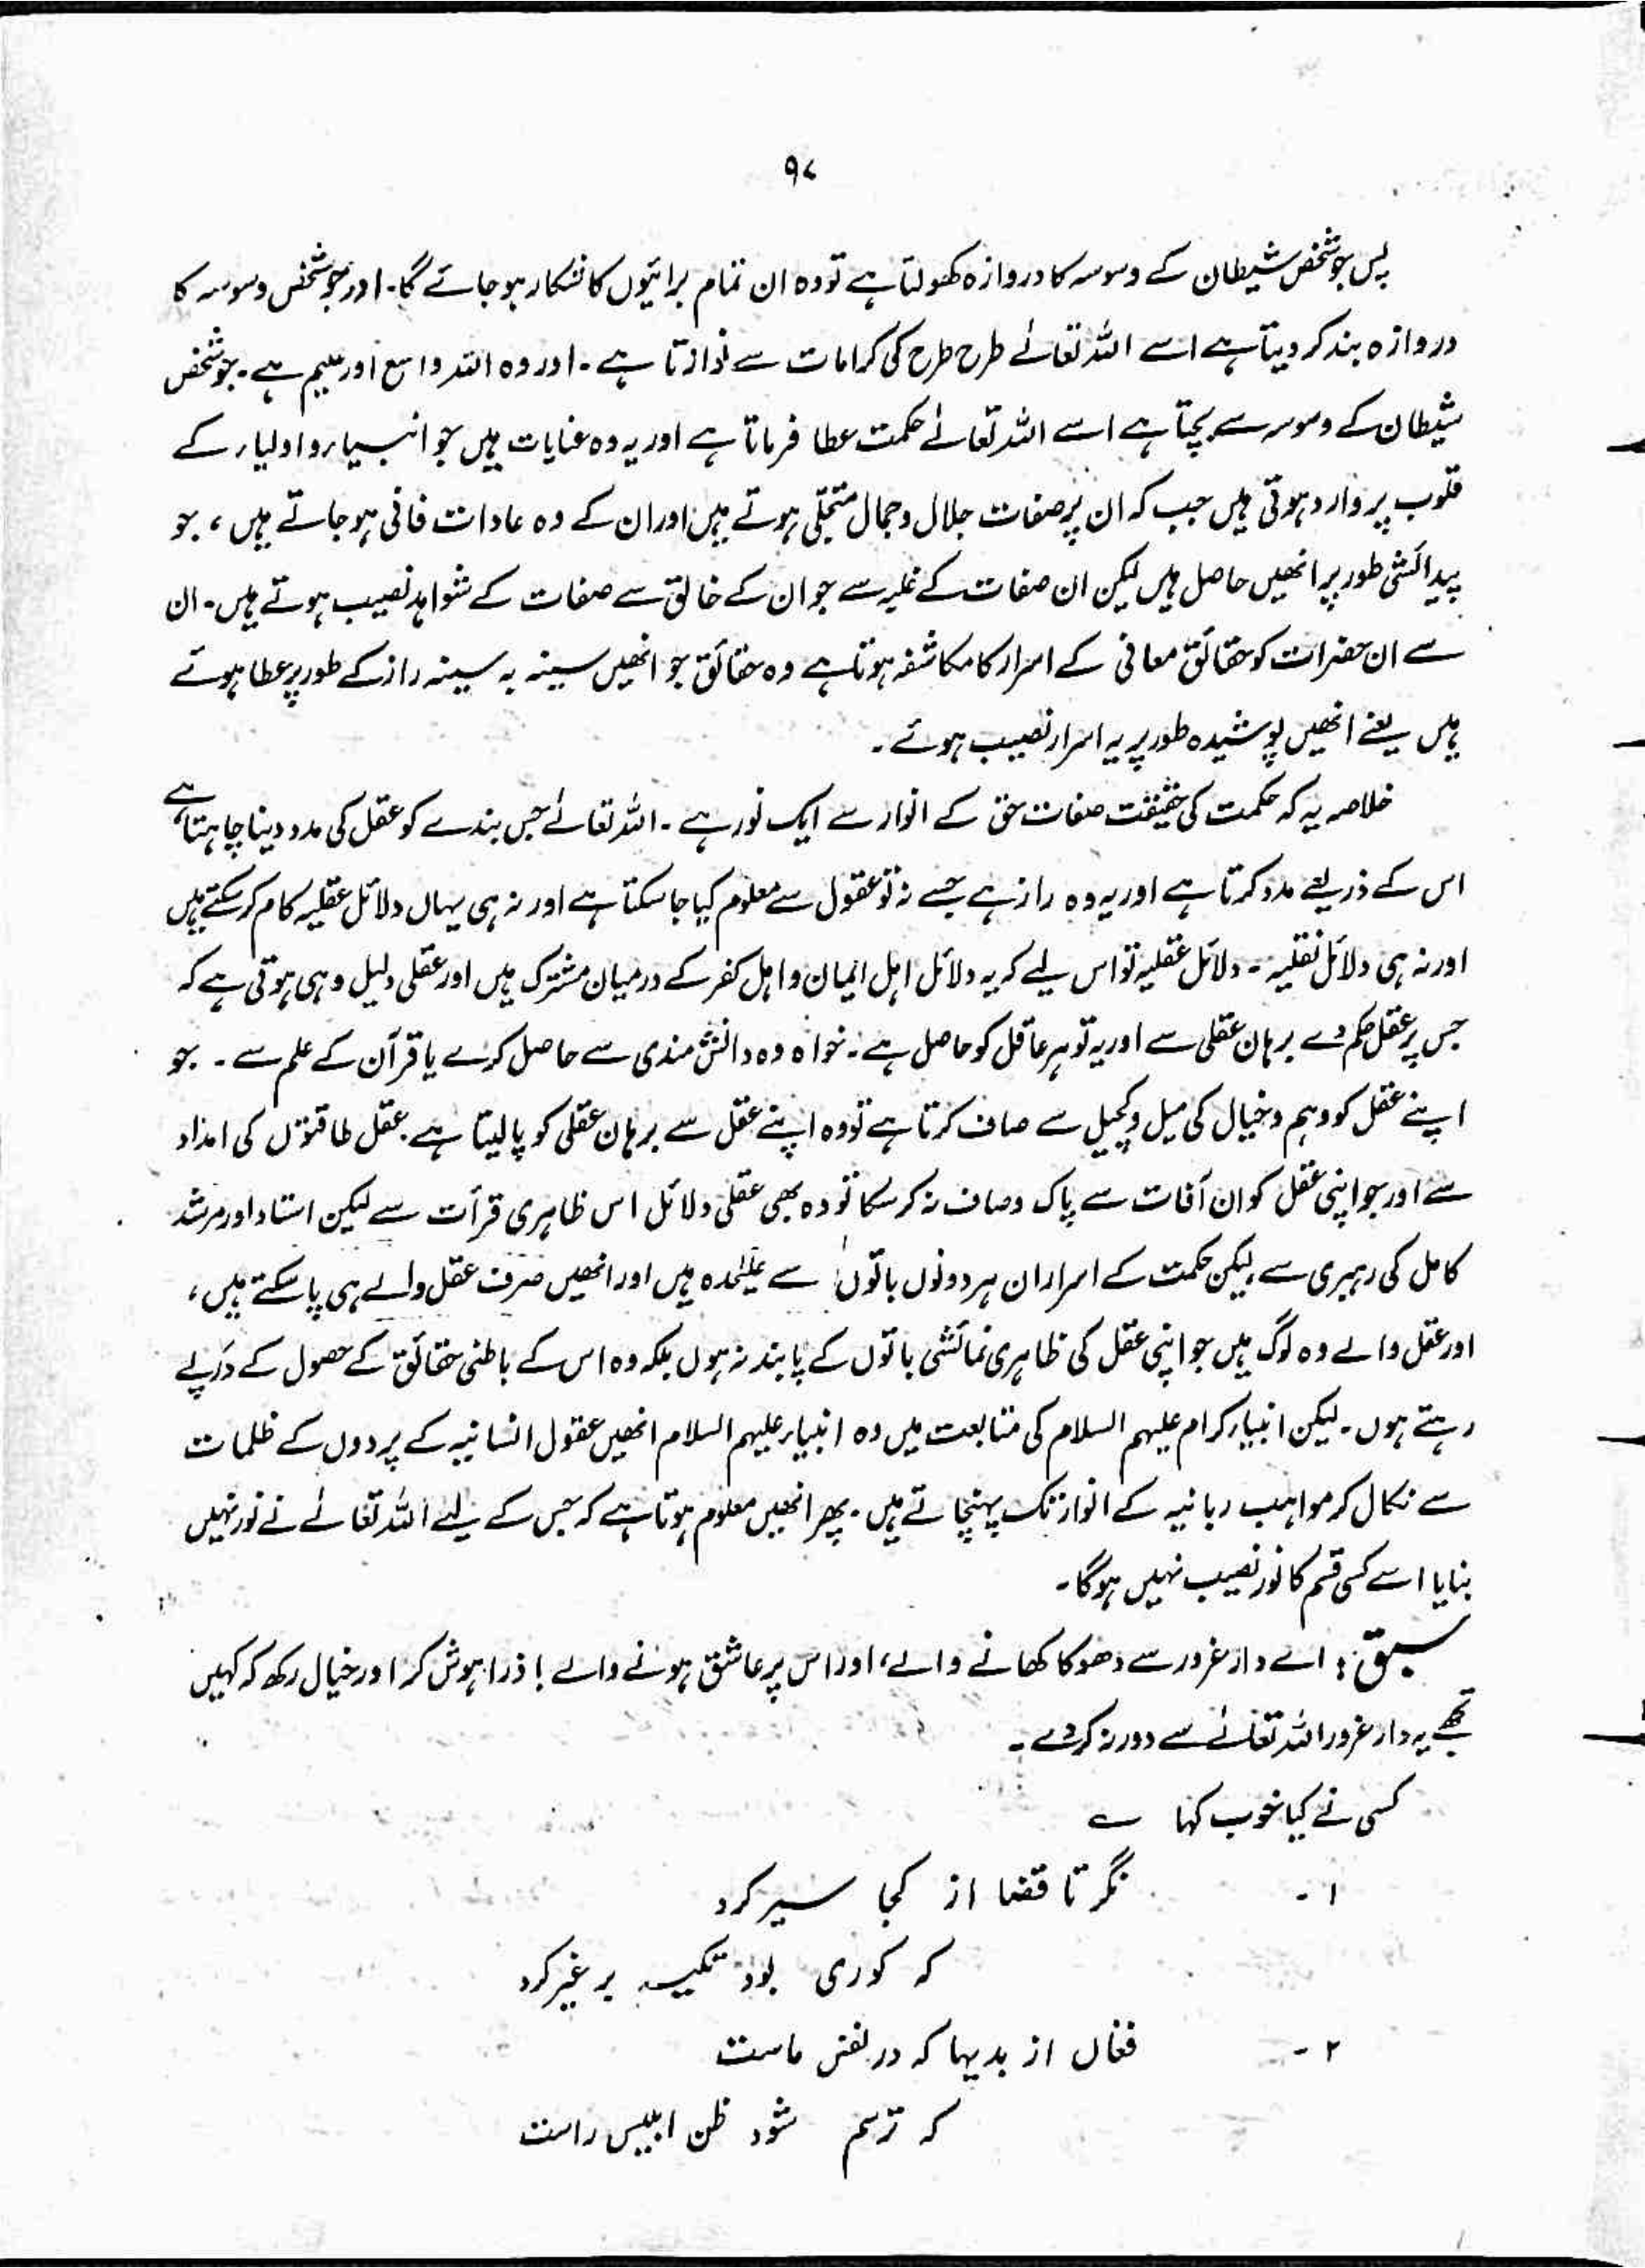 ۹۷
پس جو شخص شیطان کے وسوسہ کا دروازہ کھولتا ہے تو وہ ان تمام برائیوں کا شکار ہو جائے گا۔ اور جو شخص وسوسہ کا
دروازہ بند کر دیتا ہے اسے اللہ تعالےٰ طرح طرح کی کرامات سے نوازتا ہے۔ اور وہ اللہ واسع اور علیم ہے۔ جو شخص
شیطان کے وسوسہ سے بچتا ہے اسے اللہ تعالےٰ حکمت عطا فرماتا ہے اور یہ وہ عنایات ہیں جو انبیاء و اولیاء کے
قلوب پر وارد ہوتی ہیں جب کہ ان پر صفات جلال و جمال متجلی ہوتے ہیں اور ان کے وہ عادات فانی ہو جاتے ہیں، جو
پیدائشی طور پر انھیں حاصل ہیں لیکن ان صفات کے غلبہ سے جو ان کے خالق سے صفات کے شواہد نصیب ہوتے ہیں۔ ان
سے ان حضرات کو حقائق معانی کے اسرار کا مکاشفہ ہوتا ہے وہ حقائق جو انھیں سینہ بہ سینہ راز کے طور پر عطا ہوئے
ہیں یعنے انھیں پوشیدہ طور پر یہ اسرار نصیب ہوئے۔
خلاصہ یہ کہ حکمت کی حقیقت صفات حق کے انوار سے ایک نور ہے۔ اللہ تعالےٰ جس بندے کو عقل کی مدد دینا چاہتا ہے،
اس کے ذریعے مدد کرتا ہے اور یہ وہ راز ہے جسے نہ تو عقول سے معلوم کیا جا سکتا ہے اور نہ ہی یہاں دلائل عقلیہ کام کر سکتے ہیں
اور نہ ہی دلائل نقلیہ۔ دلائل عقلیہ تو اس لیے کہ یہ دلائل اہل ایمان و اہل کفر کے درمیان مشترک ہیں اور عقلی دلیل وہی ہوتی ہے کہ
جس پر عقل حکم دے برہان عقلی سے اور یہ تو ہر عاقل کو حاصل ہے۔ خواہ وہ دانش مندی سے حاصل کرے یا قرآن کے علم سے۔ جو
اپنے عقل کو وہم و خیال کی میل و کچیل سے صاف کرتا ہے تو وہ اپنے عقل سے برہان عقلی کو پا لیتا ہے۔ عقل طاقتوں کی امداد
سے اور جو اپنی عقل کو ان آفات سے پاک و صاف نہ کر سکا تو وہ بھی عقلی دلائل اس ظاہری قرأت سے لیکن استاد اور مرشد
کامل کی رہبری سے۔ لیکن حکمت کے اسرار ان ہر دونوں باتوں سے علیٰحدہ ہیں اور انھیں صرف عقل والے ہی پا سکتے ہیں،
اور عقل والے وہ لوگ ہیں جو اپنی عقل کی ظاہری نمائشی باتوں کے پابند نہ ہوں بلکہ وہ اس کے باطنی حقائق کے حصول کے درپے
رہتے ہوں۔ لیکن انبیاء کرام علیہم السلام کی متابعت میں وہ انبیاء علیہم السلام انھیں عقول انسانیہ کے پردوں کے ظلمات
سے نکال کر مواہب ربانیہ کے انوار تک پہنچاتے ہیں۔ پھر انھیں معلوم ہوتا ہے کہ جس کے لیے اللہ تعالےٰ نے نور نہیں
بنایا اسے کسی قسم کا نور نصیب نہیں ہوگا۔
سبق: اے دار غرور سے دھوکا کھانے والے، اور اس پر عاشق ہونے والے! ذرا ہوش کر اور خیال رکھ کہ کہیں
تجھے یہ دار غرور اللہ تعالےٰ سے دور نہ کر دے۔
کسی نے کیا خوب کہا ے
۱- نگر تا قضا از کجا سیر کرد
کہ کوری بود تکیہ بر غیر کرد
۲- فغاں از بدیہا کہ در نفس ماست
کہ ترسم شود ظن ابلیس راست